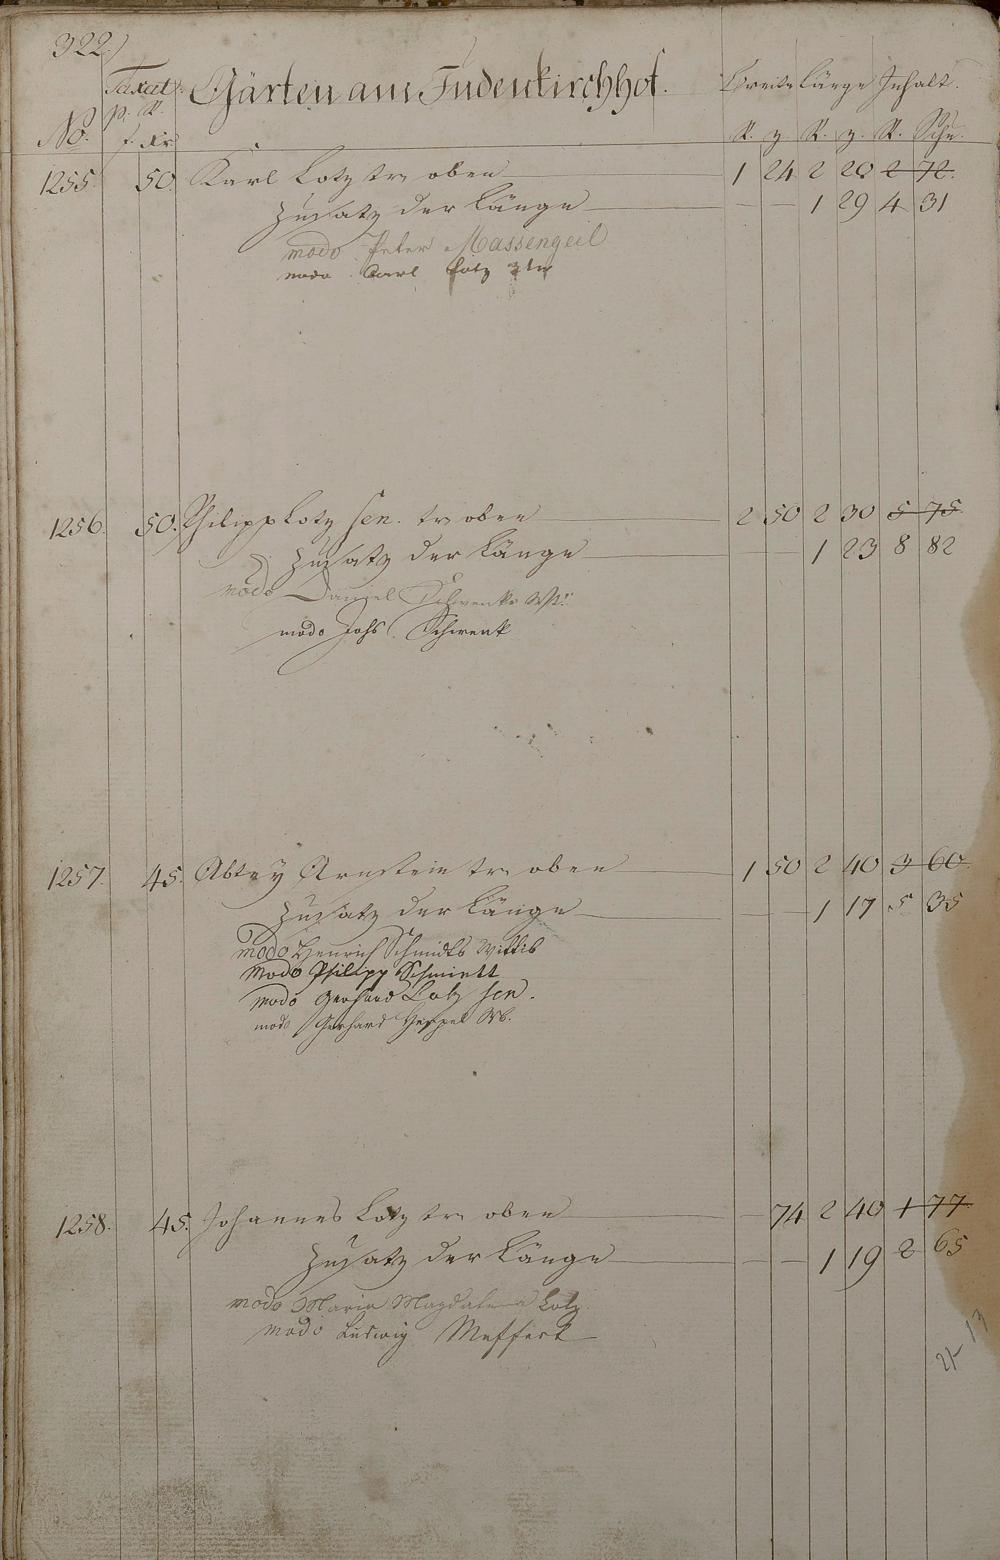 322.)
Taxat. Gärten am Judenkirchhof. Breite Länge Inhalt.
p. R.
No. f. xr R. z. R. z. R. Schu.
1255. 50. Karl Lotz tr oben 1 24 2 20 2 72.
Zusatz der Länge 1 29 4 31
modo Peter Massengeil
modo Carl Lotz 3ter
1256. 50. Philipp Lotz sen. tr oben 2 50 2 30 5 75
Zusatz der Länge 1 23 8 82
modo Daniel Schwenks Wb.
modo Johs. Schwenk
1257. 45. Abtey Arnstein tr oben 1 50 2 40 3 60
Zusatz der Länge 1 17 5 35
modo Henrich Schmidts Wittib
Modo Philipp Schmitt
modo Gerhard Lotz sen.
modo Gerhard Heppel Wb.
1258. 45. Johannes Lotz tr oben 74 2 40 1 77
Zusatz der Länge 1 19 2 65
modo Maria Magdalena Lotz
modo Ludwig Meffert
13